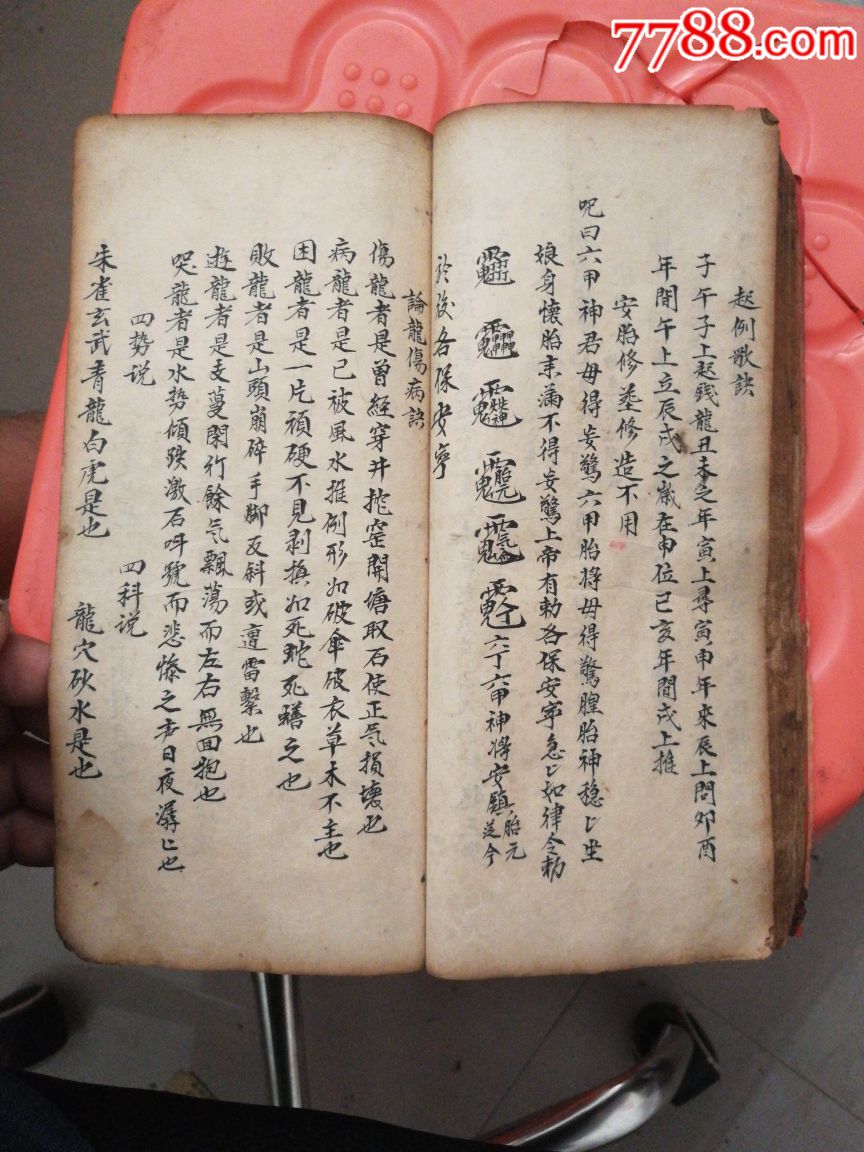 7788.com
起例歌訣
子午子上起錢龍丑未之年寅上尋寅申年來辰上問卯酉
年間午上立辰戌之歲在申位巳亥年間戌上推
安胎修塟修造不用
呪曰六甲神君毋得妄驚六甲胎將毋得驚胎神穩〻坐
娘身懷胎未滿不得妄驚上帝有勅各保安寧急〻如律令勅
六丁六甲神將安鎮胎元芝今
於後各保安寧
論龍傷病訣
傷龍者是曾經穿井挖窑開塘取石使正气損壞也
病龍者是已被風水推例形如破傘破衣草木不主也
困龍者是一片頑硬不見剥換如死蛇死鱔之也
敗龍者是山頭崩碎手脚反斜或遭雷擊也
遊龍者是支蔓閑行餘气飄蕩而左右無回抱也
哭龍者是水勢傾跌激石呌號而悲慘之声日夜潺〻也
四势说
朱雀玄武青龍白虎是也
四科说
龍穴砂水是也